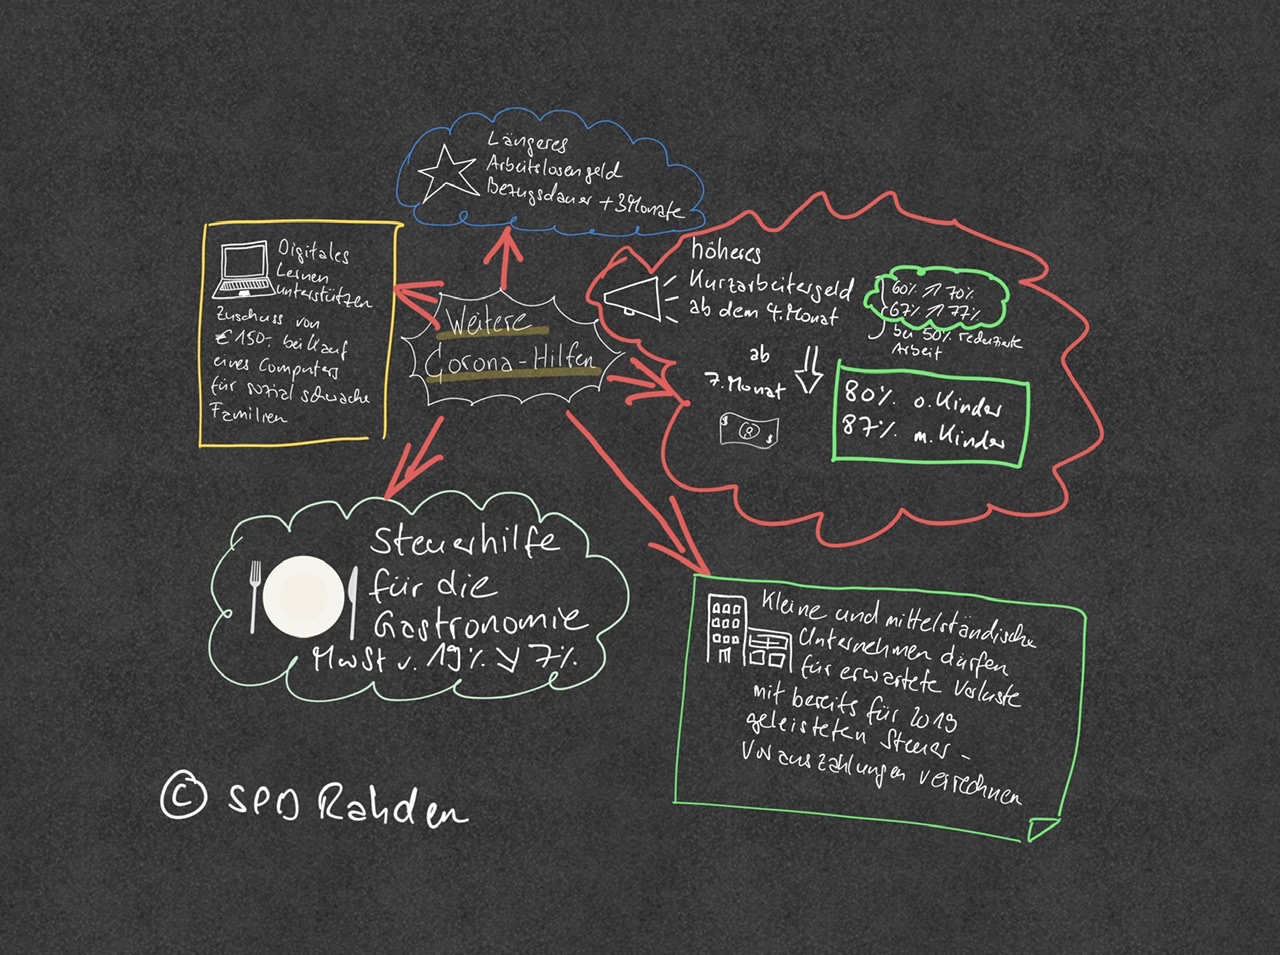 Längeres
Arbeitslosengeld
Bezugsdauer + 3 Monate
Digitales
Lernen
unterstützen
Zuschuss von
€ 150,- bei Kauf
eines Computers
für sozial schwache
Familien
Weitere
Corona-Hilfen
höheres
Kurzarbeitergeld
ab dem 4. Monat
60% ⇗ 70%
67% ⇗ 77%
bei 50% reduzierte
Arbeit
ab
7. Monat
80% o. Kinder
87% m. Kinder
Steuerhilfe
für die
Gastronomie
MwSt v. 19% ↘ 7%
Kleine und mittelständische
Unternehmen dürfen
für erwartete Verluste
mit bereits für 2019
geleisteten Steuer-
Vorauszahlungen verrechnen
© SPD Rahden